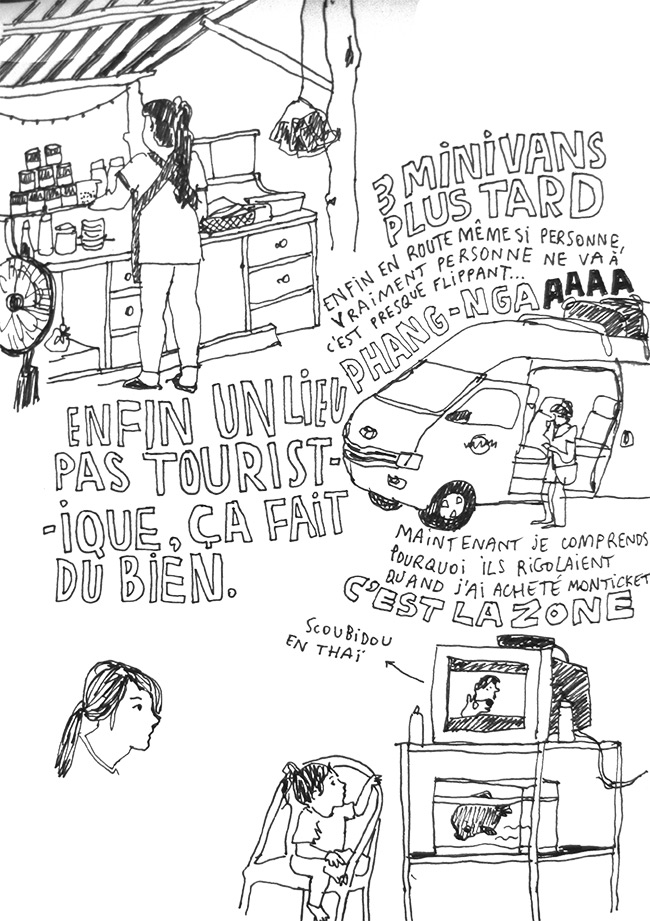 3 MINIVANS
PLUS TARD
ENFIN EN ROUTE MÊME SI PERSONNE,
VRAIMENT PERSONNE NE VA À
C'EST PRESQUE FLIPPANT...
PHANG-NGA AAAA
ENFIN UN LIEU
PAS TOURIST-
-IQUE, ÇA FAIT
DU BIEN.
MAINTENANT JE COMPRENDS
POURQUOI ILS RIGOLAIENT
QUAND J'AI ACHETÉ MON TICKET
C'EST LA ZONE
SCOUBIDOU
EN THAÏ